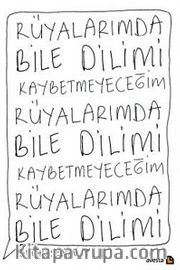 RÜYALARIMDA
BİLE DİLİMİ
KAYBETMEYECEĞİM
RÜYALARIMDA
BİLE DİLİMİ
KAYBETMEYECEĞİM
RÜYALARIMDA
BİLE DİLİMİ
avesta
kitapavrupa.com